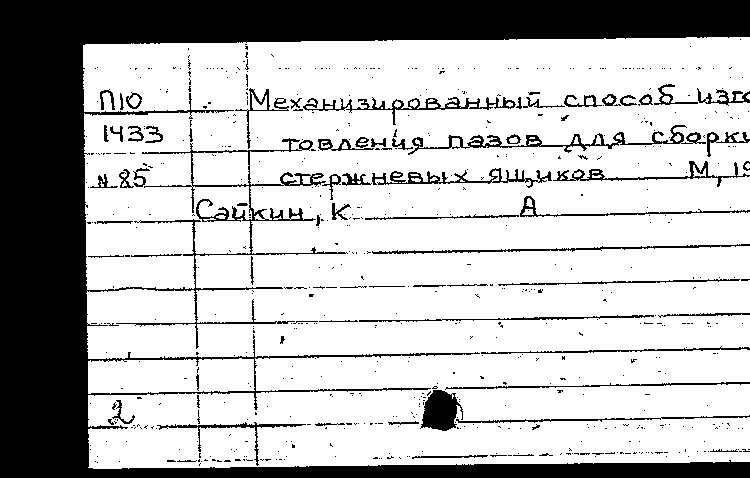 П10 Механизированный способ изго
1433 товления пазов для сборки
N 85 стержневых ящиков М, 19
Сайкин, К А
2